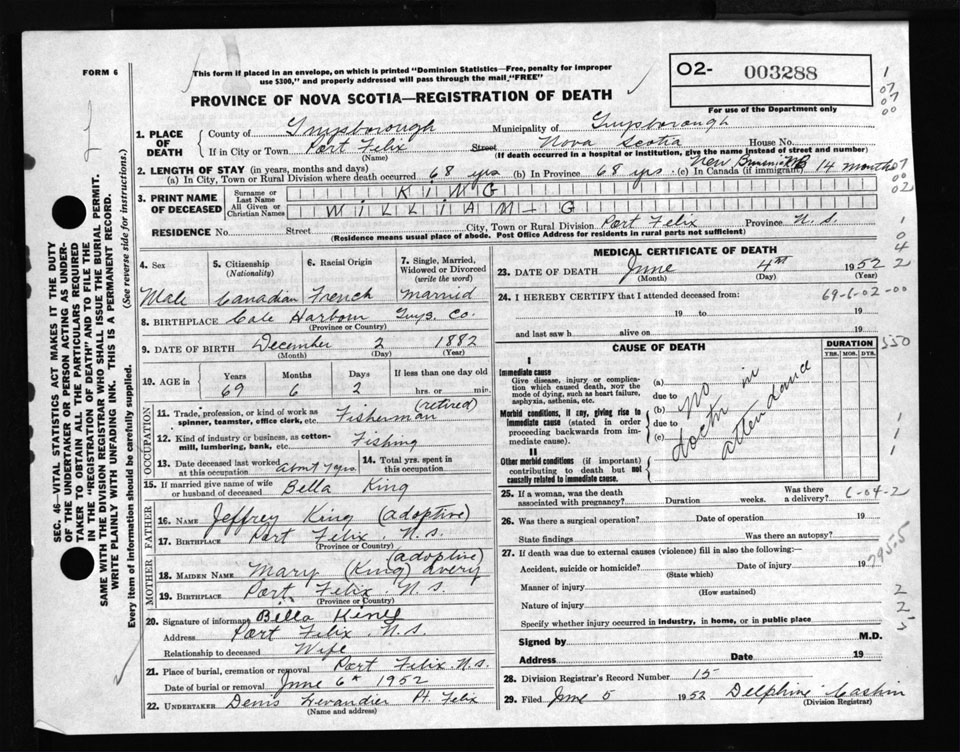 FORM 6
This form if placed in an envelope, on which is printed "Dominion Statistics—Free, penalty for improper
use $300," and properly addressed will pass through the mail "FREE"
O2- 003288
For use of the Department only
PROVINCE OF NOVA SCOTIA—REGISTRATION OF DEATH
1. PLACE OF DEATH
County of Guysborough Municipality of Guysborough
If in City or Town Port Felix Street Nova Scotia House No.
(Name) (If death occurred in a hospital or institution, give the name instead of street and number)
2. LENGTH OF STAY (in years, months and days)
(a) In City, Town or Rural Division where death occurred 68 yrs (b) In Province 68 yrs. (c) In Canada (if immigrant) New 14 months
3. PRINT NAME OF DECEASED
Surname or Last Name KING
All Given or Christian Names WILLIAM - G
RESIDENCE No. Street City, Town or Rural Division Port Felix Province N.S.
(Residence means usual place of abode. Post Office Address for residents in rural parts not sufficient)
4. Sex
5. Citizenship (Nationality)
6. Racial Origin
7. Single, Married, Widowed or Divorced (write the word)
Male Canadian French Married
8. BIRTHPLACE Cole Harbour Guys. Co.
(Province or Country)
9. DATE OF BIRTH December 2 1882
(Month) (Day) (Year)
10. AGE in Years Months Days If less than one day old
69 6 2 hrs. or min.
OCCUPATION
11. Trade, profession, or kind of work as spinner, teamster, office clerk, etc. Fisherman (retired)
12. Kind of industry or business, as cotton-mill, lumbering, bank, etc. Fishing
13. Date deceased last worked at this occupation About 7 yrs.
14. Total yrs. spent in this occupation
15. If married give name of wife or husband of deceased Bella King
FATHER
16. NAME Jeffrey King (adoptive)
17. BIRTHPLACE Port Felix N.S.
(Province or Country)
MOTHER
18. MAIDEN NAME Mary (King) Avery (adoptive)
19. BIRTHPLACE Port Felix N.S.
(Province or Country)
20. Signature of informant Bella King
Address Port Felix N.S.
Relationship to deceased Wife
21. Place of burial, cremation or removal Port Felix N.S.
Date of burial or removal June 6th 1952
22. UNDERTAKER Denis Pt. Felix
(Name and address)
MEDICAL CERTIFICATE OF DEATH
23. DATE OF DEATH June 4th 1952
(Month) (Day) (Year)
24. I HEREBY CERTIFY that I attended deceased from: 69-6-02-00
19 to 19
and last saw h alive on 19
CAUSE OF DEATH
DURATION
YRS. MOS. DYS.
I
Immediate cause
Give disease, injury or complication which caused death, NOT the mode of dying, such as heart failure, asphyxia, asthenia, etc.
Morbid conditions, if any, giving rise to immediate cause (stated in order proceeding backwards from immediate cause).
(a)
due to
(b)
due to
(c)
no doctor in attendance
II
Other morbid conditions (if important) contributing to death but not causally related to immediate cause.
25. If a woman, was the death associated with pregnancy? Duration weeks. Was there a delivery? 6-04-2
26. Was there a surgical operation? Date of operation 19
State findings Was there an autopsy?
27. If death was due to external causes (violence) fill in also the following:—
Accident, suicide or homicide? Date of injury 19
(State which)
Manner of injury
(How sustained)
Nature of injury
Specify whether injury occurred in industry, in home, or in public place
Signed by M.D.
Address Date 19
28. Division Registrar's Record Number 15
29. Filed June 5 1952 Delphine
(Division Registrar)
7955
SEC. 46—VITAL STATISTICS ACT MAKES IT THE DUTY
OF THE UNDERTAKER OR PERSON ACTING AS UNDER-
TAKER TO OBTAIN ALL THE PARTICULARS REQUIRED
IN THE "REGISTRATION OF DEATH" AND TO FILE THE
SAME WITH THE DIVISION REGISTRAR WHO SHALL ISSUE THE BURIAL PERMIT.
WRITE PLAINLY WITH UNFADING INK. THIS IS A PERMANENT RECORD.
Every item of information should be carefully supplied. (See reverse side for instructions.)